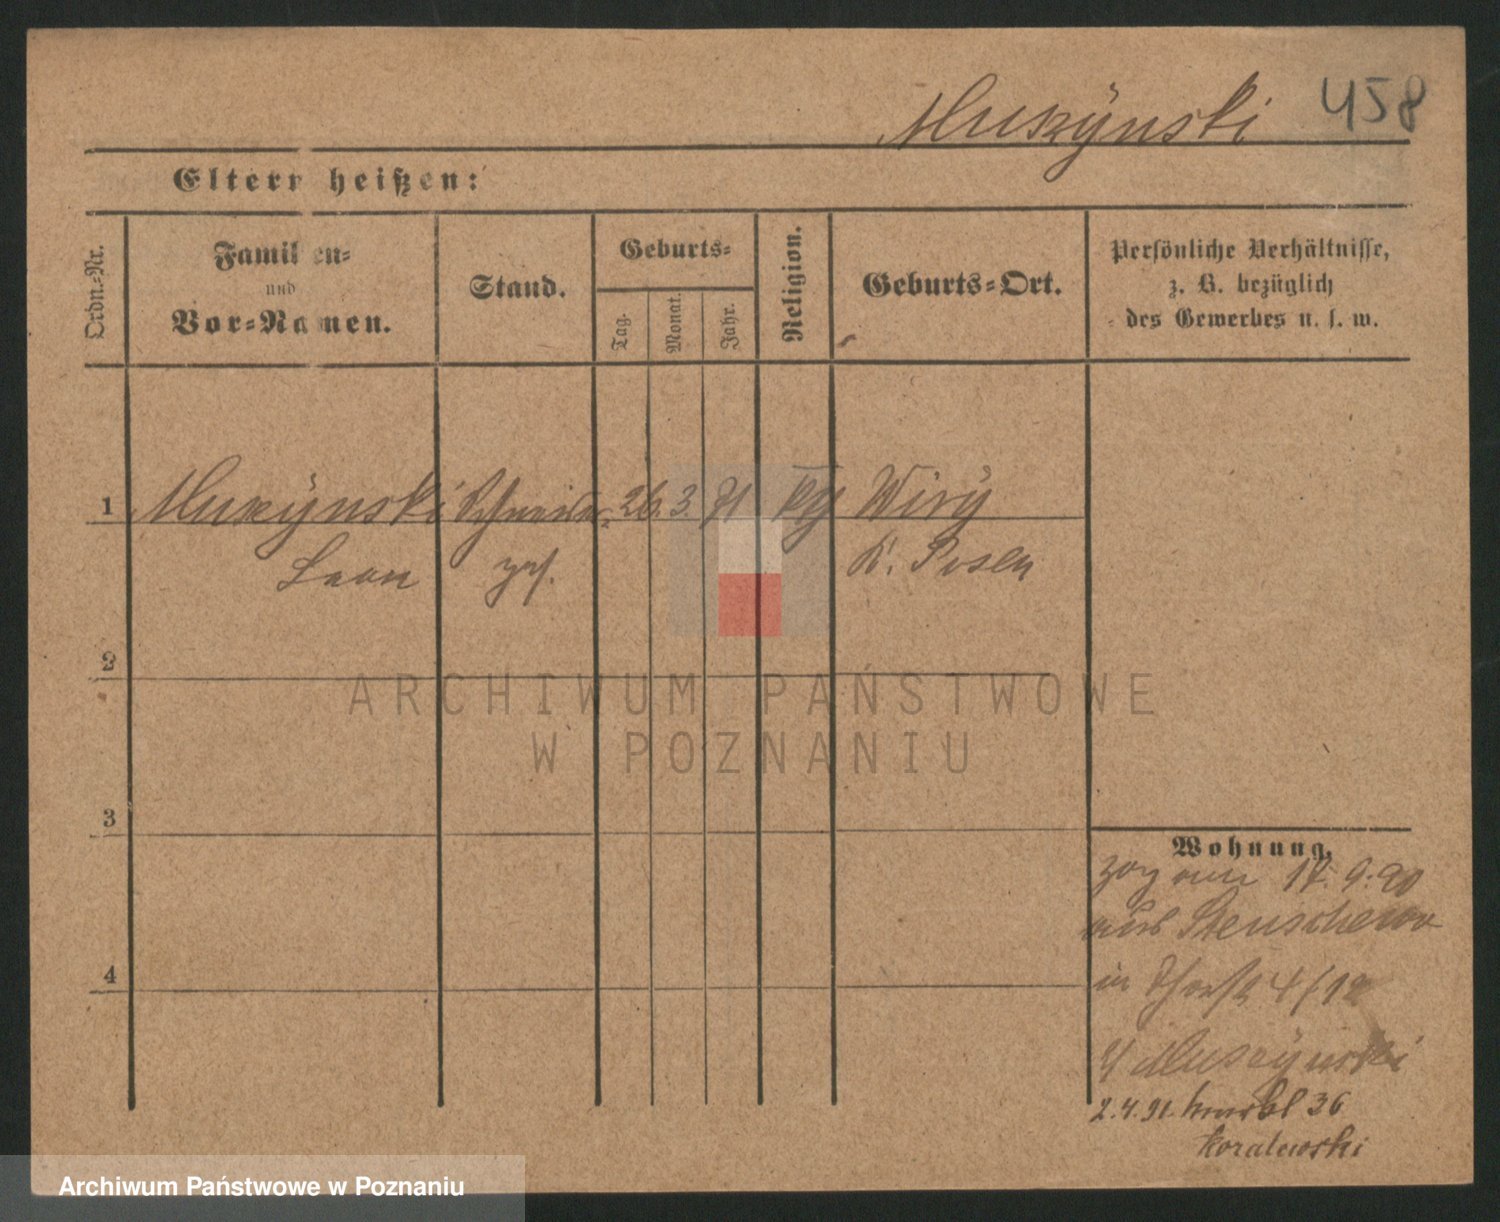 Muszÿnski 458
Eltern heißen:
Ordn.-Nr.
Familien-
und
Vor-Namen.
Stand.
Geburts-
Tag.
Monat.
Jahr.
Religion.
Geburts-Ort.
Persönliche Verhältnisse,
z. B. bezüglich
des Gewerbes u. s. w.
1 Muszÿnski Schneider 26. 3. 71 Wirÿ
Leon K. Posen
2
ARCHIWUM PAŃSTWOWE
W POZNANIU
3
Wohnung.
zog am 17. 9. 90
aus Stenschewo
4
in 4/12
Muszÿnski
2.4.91. 36
Koralewski
Archiwum Państwowe w Poznaniu